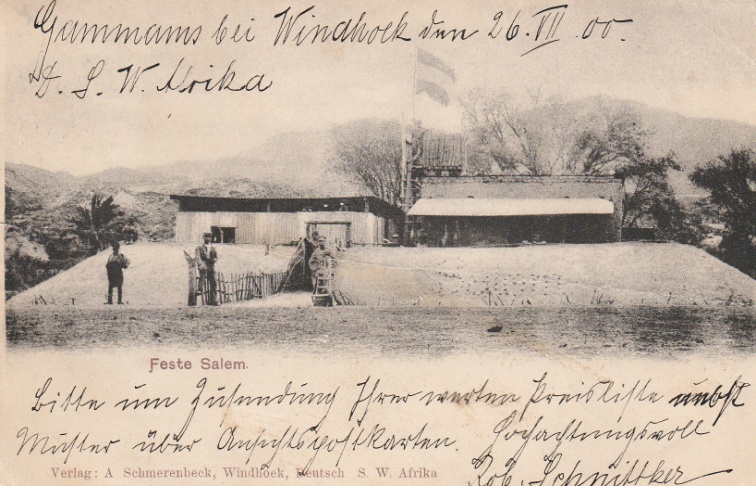 Gammams bei Windhoek den 26. VII. 00.
D. S. W. Afrika
Feste Salem.
Bitte um Zusendung Ihrer werten Preisliste nebst
Muster über Ansichtspostkarten. Hochachtungsvoll
Rob. Schnittker
Verlag: A Schmerenbeck, Windhoek, Deutsch S. W. Afrika